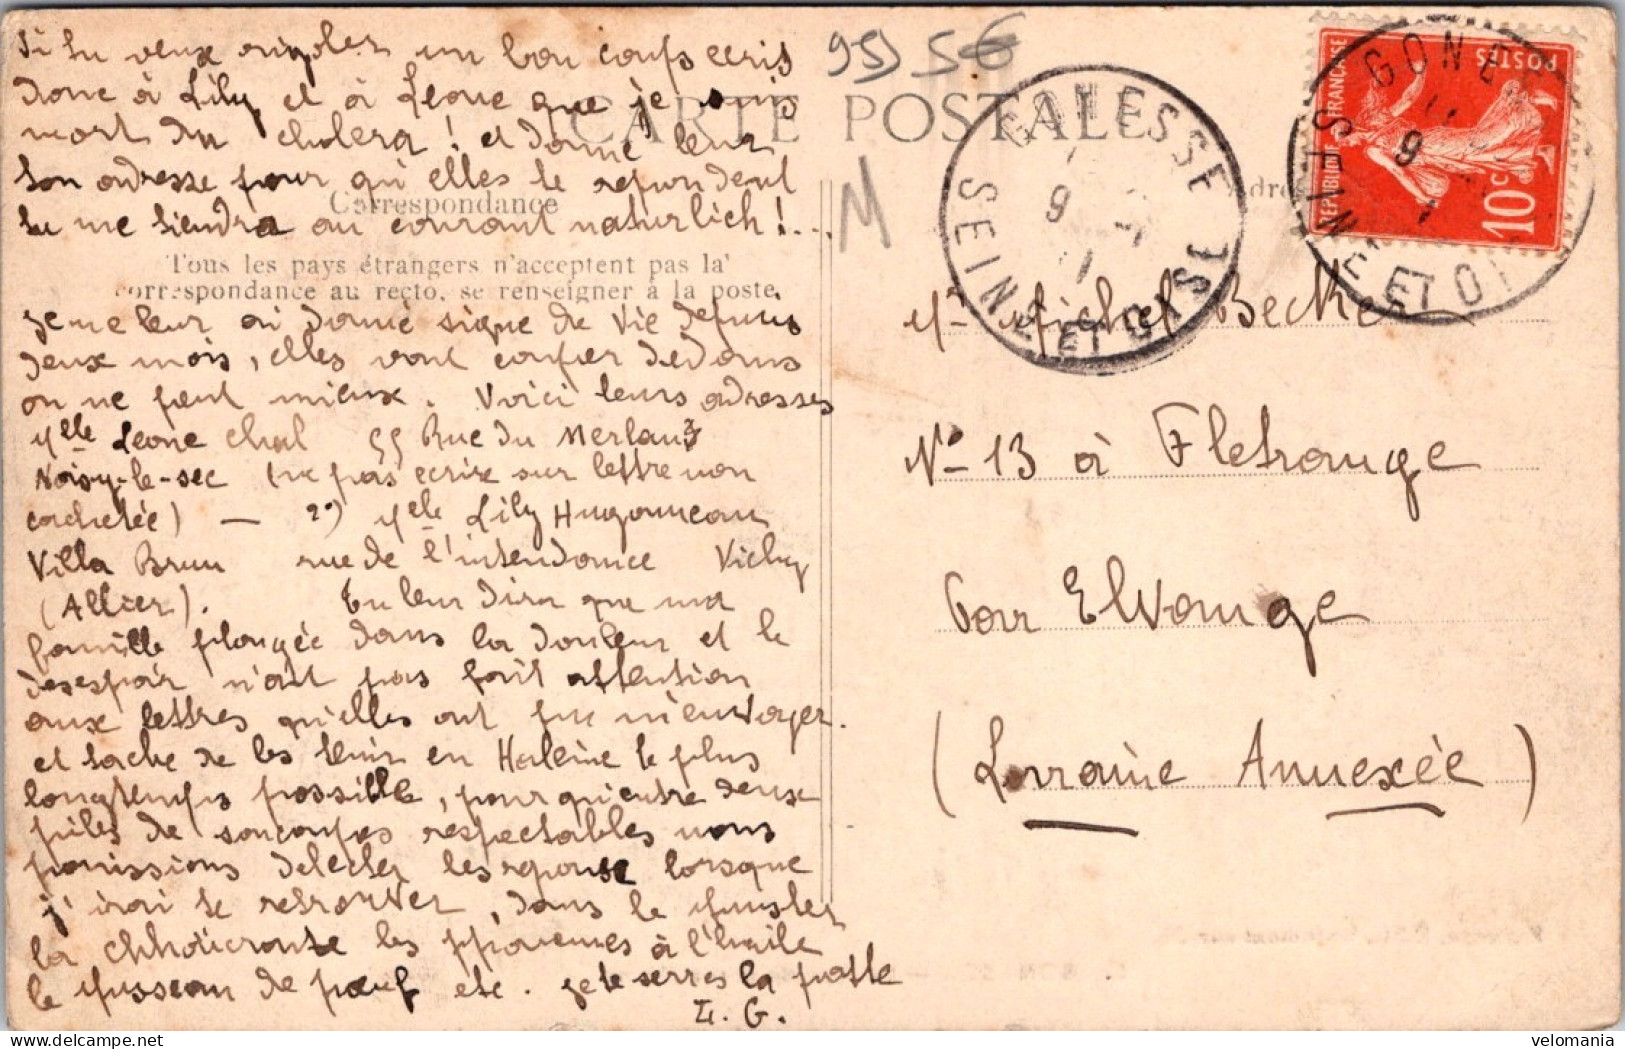 Si tu veux rigoler un bon coup ecris
donc à Lily et à Leone que je suis
mort du cholera ! et donne leur
ton adresse pour qu'elles te repondent
tu me tiendra au courant naturlich !...
Je ne leur ai donné signe de vie depuis
deux mois, elles vont couper dedans
on ne peut mieux. Voici leurs adresses
Mlle Leone Chal 55 Rue du Merlan
Noisy-le-sec (ne pas ecrire sur lettre non
cachetée) — 2°) Melle Lily Hugonneau
Villa Brun rue de l'intendance Vichy
(Allier). Tu leur dira que ma
famille plongée dans la douleur et le
desespoir n'ait pas fait attention
aux lettres qu'elles ont pu m'envoyer.
et tache de les tenir en Haleine le plus
longtemps possible, pour qu'entre deux
piles de soucoupes respectables nous
puissions delecter les reponse lorsque
j'irai te retrouver, dans le Munster
la chhoucroute les pprunes à l'huile
le Musseau de pœuf etc. Je te serres la patte
L. G.
CARTE POSTALE
Correspondance
Tous les pays étrangers n'acceptent pas la
correspondance au recto, se renseigner à la poste.
95) 5€
M
GONESSE
9
11
SEINE ET OISE
GONESSE
9
SEINE ET OISE
REPUBLIQUE FRANÇAISE
POSTES
10c
Mr Michel Becker
No 13 à Fletrange
Par Elvange
(Lorraine Annexée)
velomania